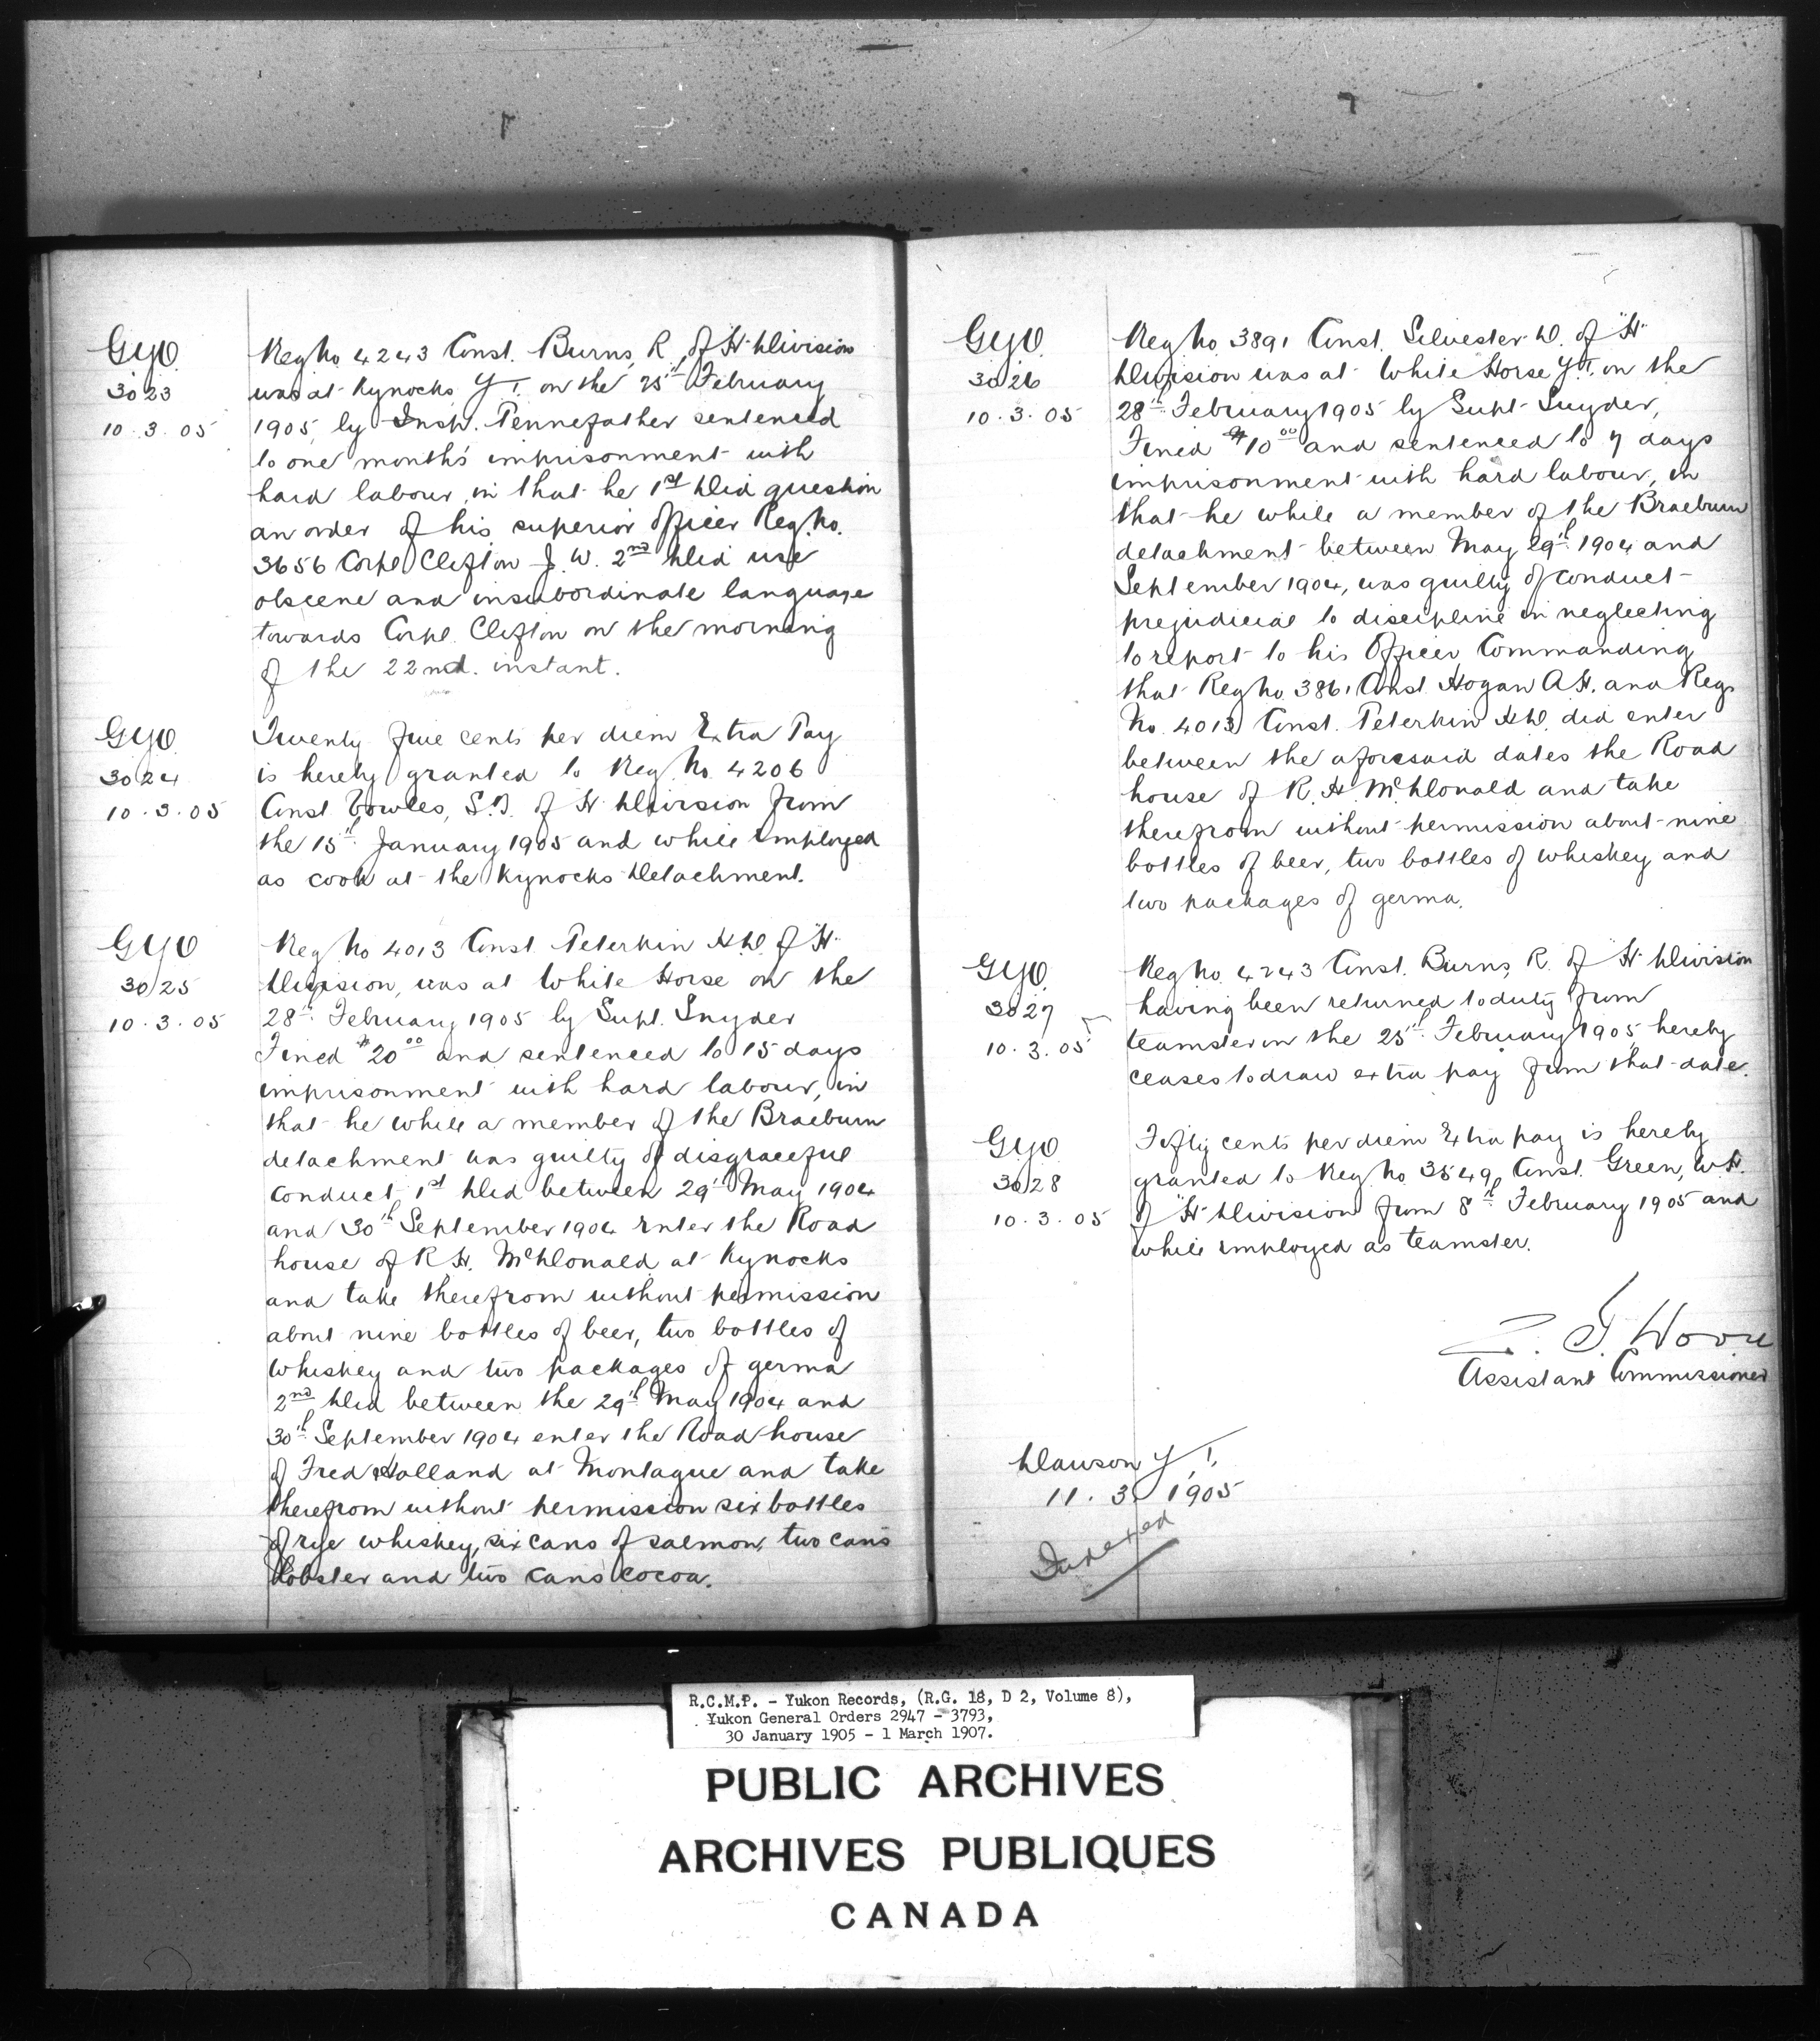 GYO
3023
10.3.05
Reg No 4243 Const. Burns, R. of "H" Division
was at Kynocks Y.T. on the 25th February
1905, by Insp. Pennefather sentenced
to one month's imprisonment with
hard labour, in that he 1st Did question
an order of his superior officer Reg. No.
3656 Corpl Clifton J. W. 2nd Did use
obscene and insubordinate language
towards Corpl. Clifton on the morning
of the 22nd. instant.
GYO
3024
10.3.05
Twenty five cents per diem Extra Pay
is hereby granted to Reg. No. 4206
Const Cowles, S.B. of H Division from
the 15th January 1905 and while employed
as cook at the Kynocks Detachment.
GYO
3025
10.3.05
Reg No 4013 Const. Peterkin H.D. of "H"
Division, was at White Horse on the
28th February 1905 by Supt. Snyder
Fined $20.00 and sentenced to 15 days
imprisonment with hard labour, in
that he while a member of the Braeburn
detachment was guilty of disgraceful
conduct 1st Did between 29th May 1904
and 30th September 1904 enter the Road
house of R. H. McDonald at Kynocks
and take therefrom without permission
about nine bottles of beer, two bottles of
whiskey and two packages of germa
2nd Did between the 29th May 1904 and
30th September 1904 enter the Road house
of Fred Holland at Montague and take
therefrom without permission six bottles
of rye whiskey, six cans of salmon, two cans
lobster and two cans cocoa.
GYO
3026
10.3.05
Reg No 3891 Const. Silvester D. of "H"
Division was at White Horse Y.T. on the
28th February 1905 by Supt Snyder,
Fined $10.00 and sentenced to 7 days
imprisonment with hard labour, in
that he while a member of the Braeburn
detachment between May 29th 1904 and
September 1904, was guilty of conduct
prejudicial to discipline in neglecting
to report to his Officer Commanding
that Reg No 3861 Const Hogan A.H. and Reg
No. 4013 Const. Peterkin H.D. did enter
between the aforesaid dates the Road
house of R. H. McDonald and take
therefrom without permission about nine
bottles of beer, two bottles of whiskey and
two packages of germa.
GYO
3027
10.3.05
Reg No. 4243 Const. Burns, R. of "H" Division
having been returned to duty from
teamster on the 25th February 1905 hereby
ceases to draw extra pay from that date.
GYO
3028
10.3.05
Fifty cents per diem Extra pay is hereby
granted to Reg No 3549 Const. Green, W.H.
of "H" Division from 8th February 1905 and
while employed as teamster.
Z. T. Wood
Assistant Commissioner
Dawson Y.T.
11.3.1905
Indexed
R.C.M.P. - Yukon Records, (R.G. 18, D 2, Volume 8),
Yukon General Orders 2947 - 3793,
30 January 1905 - 1 March 1907.
PUBLIC ARCHIVES
ARCHIVES PUBLIQUES
CANADA